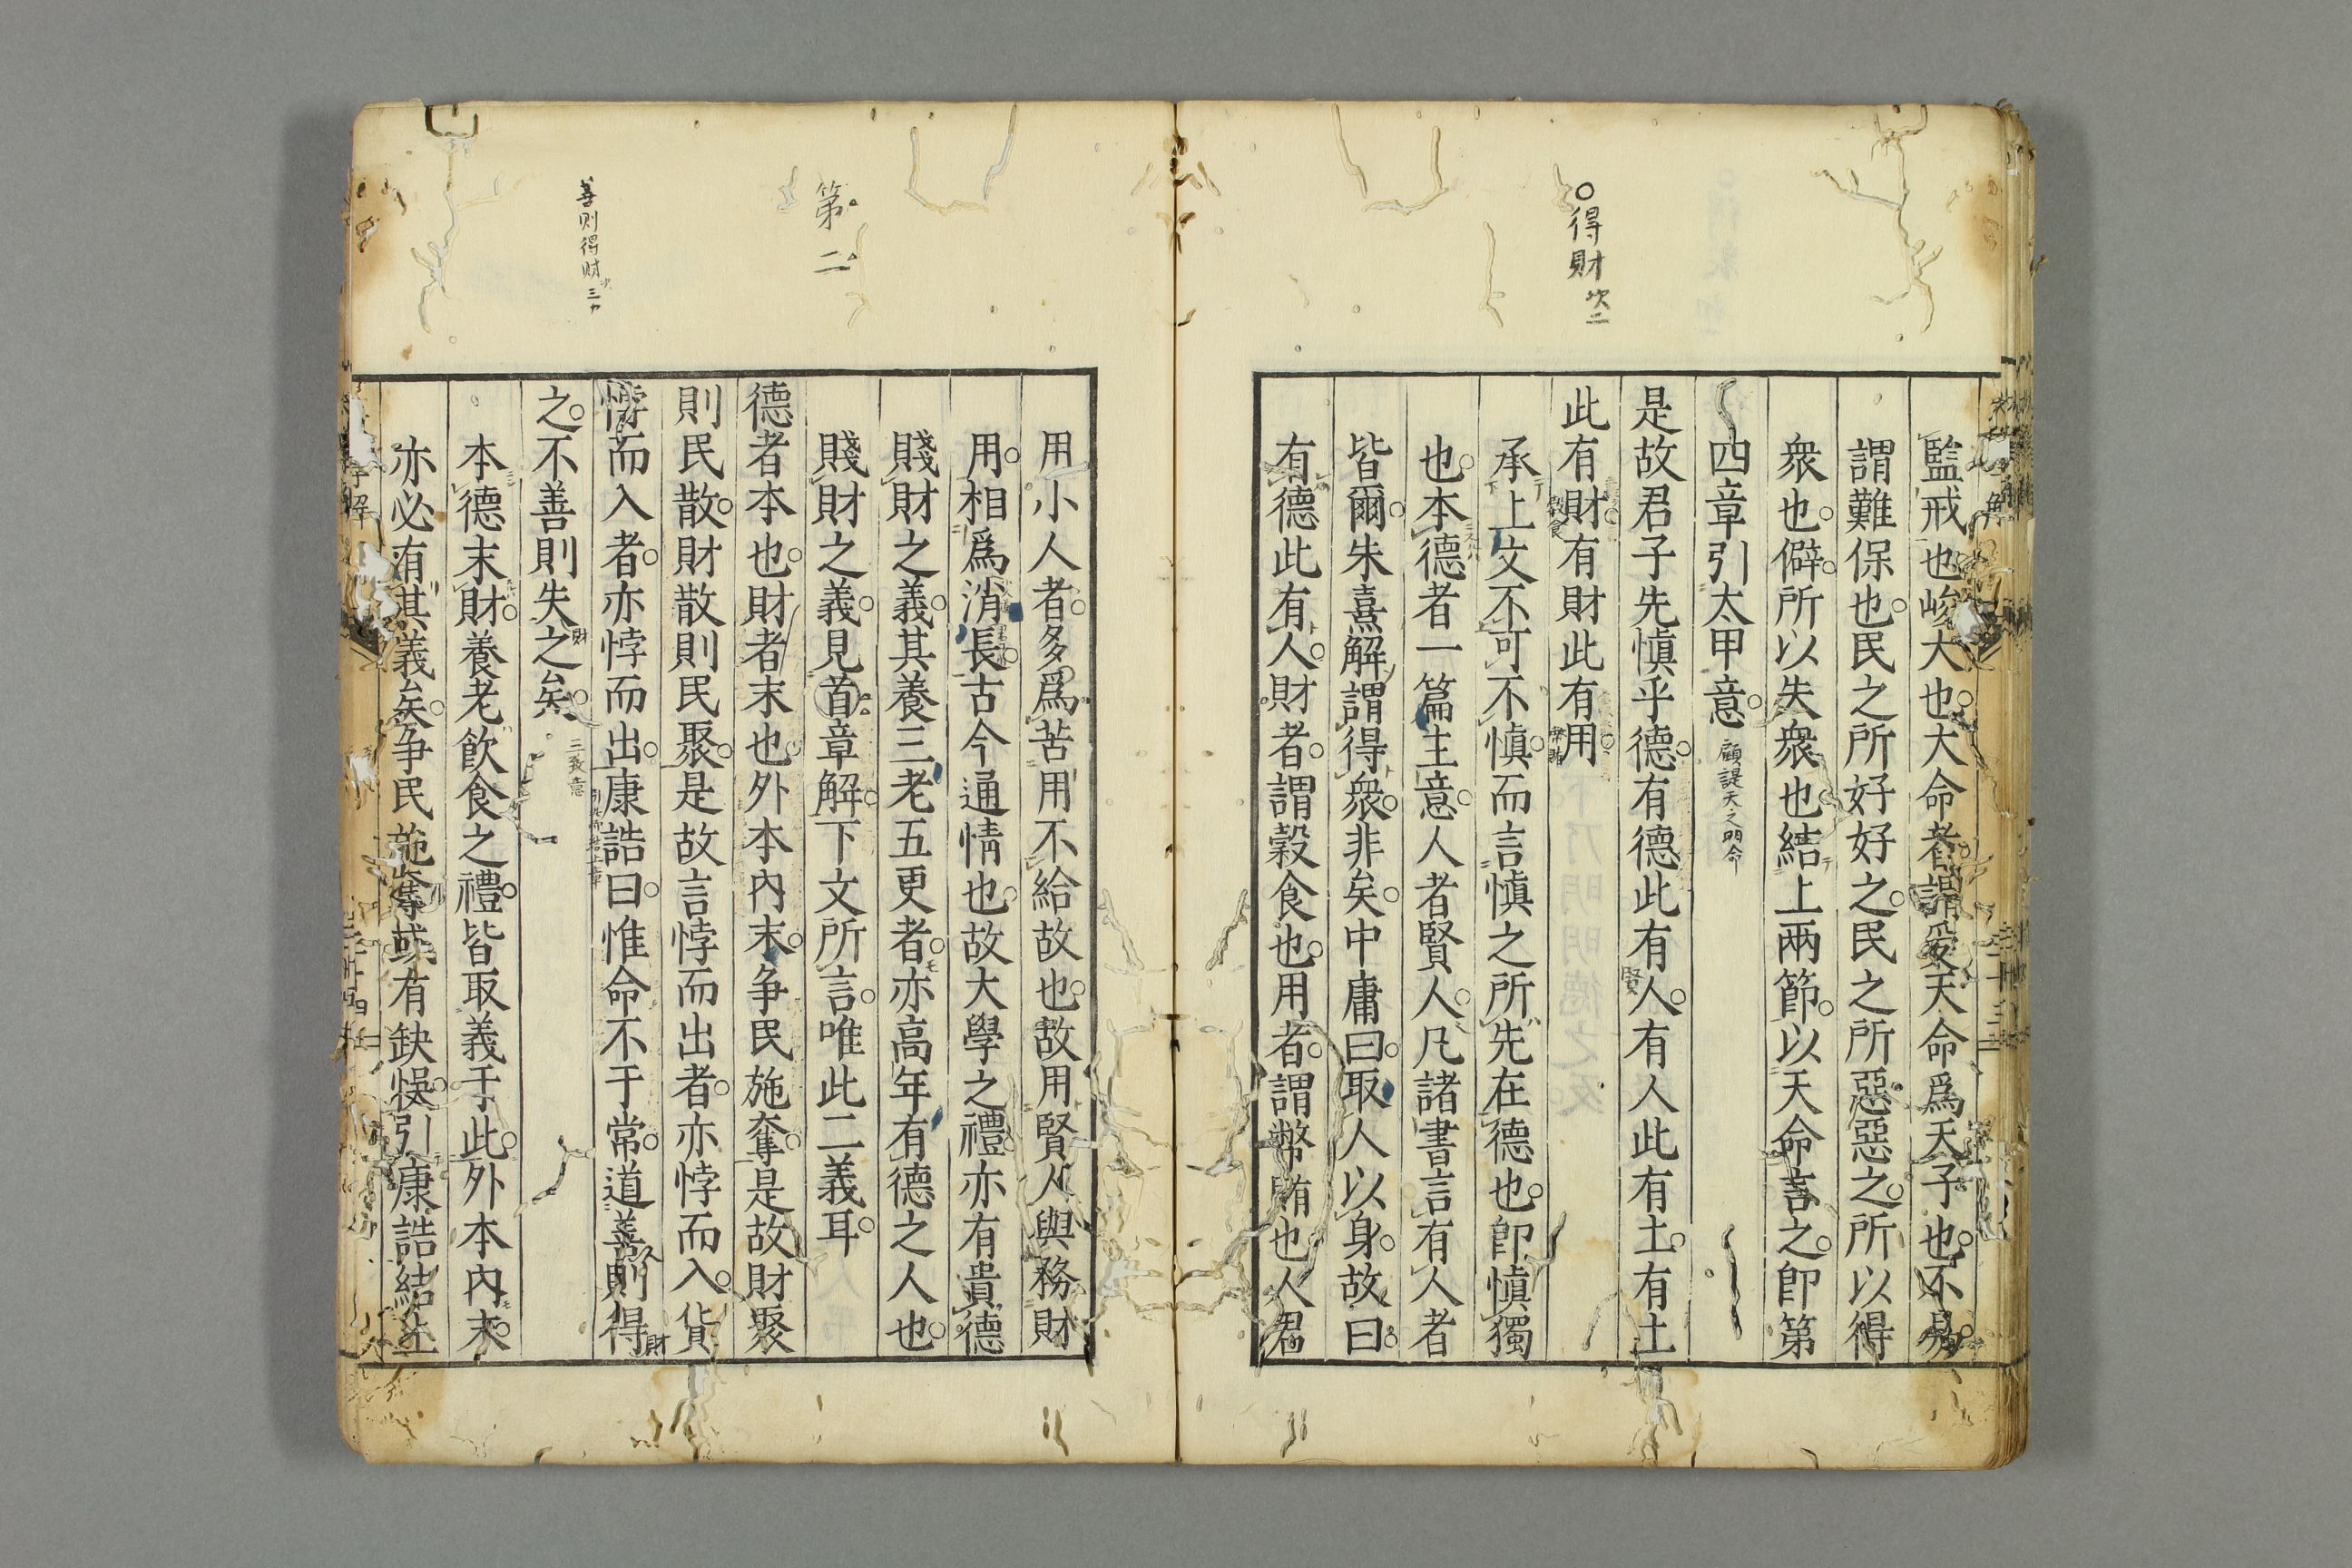 ○得財次二
監戒也峻大也大命者謂受天命爲天子也不易
謂難保也民之所好好之民之所惡惡之所以得
衆也僻所以失衆也結上兩節以天命言之卽第
四章引太甲意顧諟天之明命
是故君子先愼乎德有德此有人有人此有土有土
此有財有財此有用
承上文不可不愼而言愼之所先在德也卽愼獨
也本德者一篇主意人者賢人凡諸書言有人者
皆爾朱熹解謂得衆非矣中庸曰取人以身故曰
有德此有人財者謂穀食也用者謂幣賄也人君
第二
善则得财
用小人者多爲苦用不給故也故用賢人與務財
用相爲消長古今通情也故大學之禮亦有貴德
賤財之義其養三老五更者亦高年有德之人也
賤財之義見首章解下文所言唯此二義耳
德者本也財者末也外本內末爭民施奪是故財聚
則民散財散則民聚是故言悖而出者亦悖而入貨
悖而入者亦悖而出康誥曰惟命不于常道善則得
之不善則失之矣
本德末財養老飲食之禮皆取義于此外本內末
亦必有其義矣爭民施奪或有缺悞引康誥結上